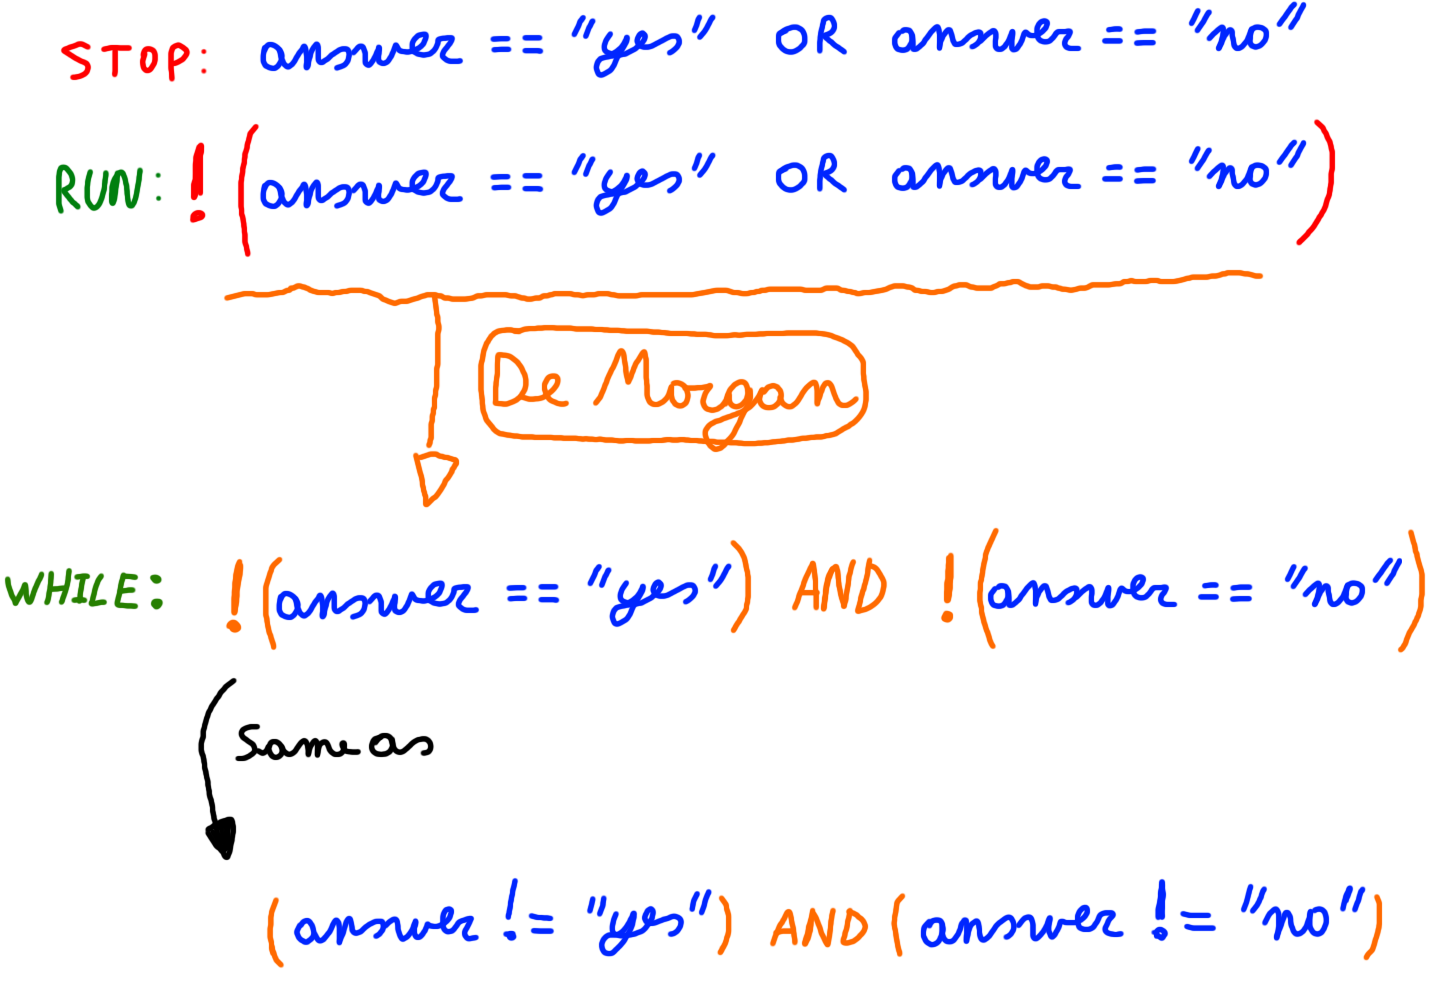 STOP: answer == "yes" OR answer == "no"
RUN: !(answer == "yes" OR answer == "no")
De Morgan
WHILE: !(answer == "yes") AND !(answer == "no")
Same as
(answer != "yes") AND (answer != "no")